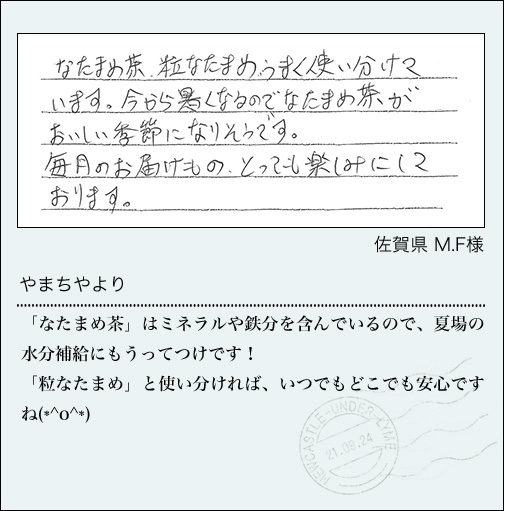 なたまめ茶、粒なたまめ、うまく使い分けて
います。今から暑くなるのでなたまめ茶が
おいしい季節になりそうです。
毎月のお届けもの、とっても楽しみにして
おります。
佐賀県 M.F様
やまちやより
「なたまめ茶」はミネラルや鉄分を含んでいるので、夏場の
水分補給にもうってつけです！
「粒なたまめ」と使い分ければ、いつでもどこでも安心です
ね(*^o^*)
NEWCASTLE-UNDER-LYME
21.09.24